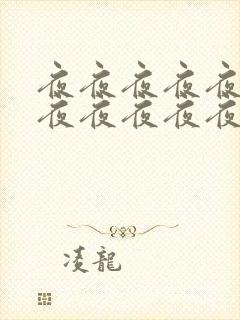 夜夜夜夜夜
夜夜夜夜夜
凌龍